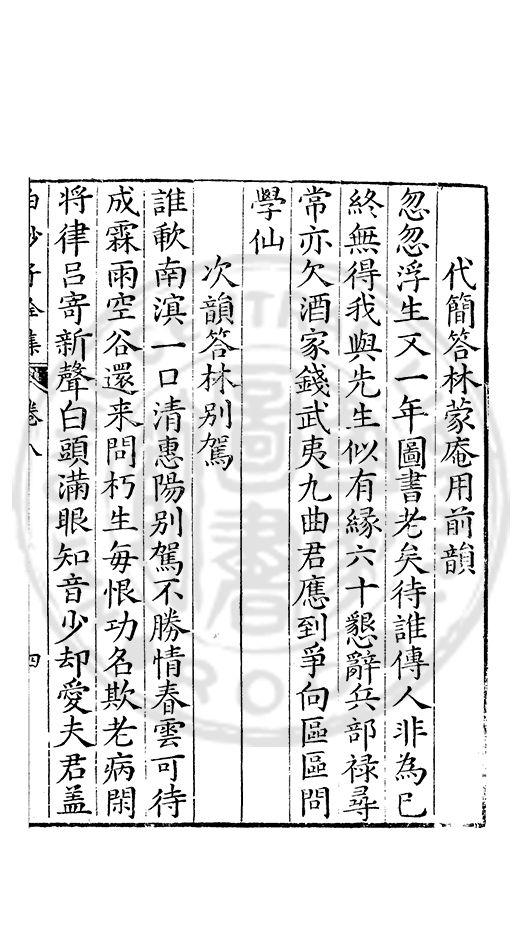 代簡答林蒙庵用前韻
忽忽浮生又一年圖書老矣待誰傳人非為已
終無得我與先生似有緣六十懇辭兵部禄尋
常亦欠酒家錢武夷九曲君應到爭向區區問
學仙
次韻答林别駕
誰軟南溟一口清惠陽别駕不勝情春雲可待
成霖雨空谷還来問朽生每恨功名欺老病閑
将律呂寄新聲白頭滿眼知音少却愛夫君盖
白沙子全集 卷八 四